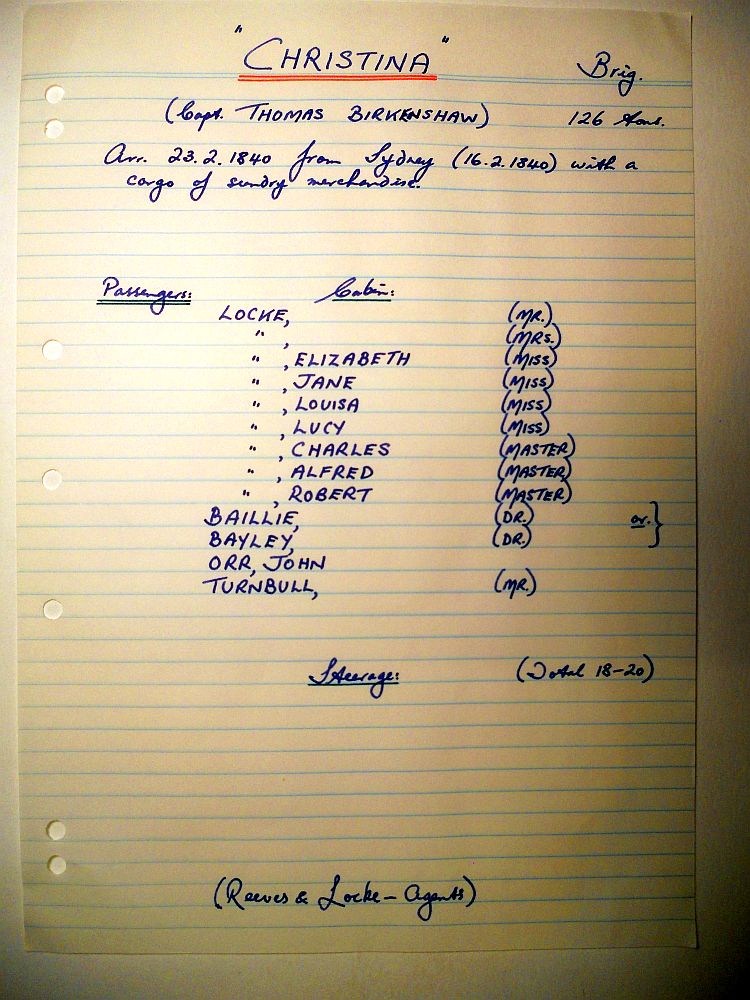 "CHRISTINA" Brig.
(Capt. THOMAS BIRKENSHAW) 126 tons.
Arr. 23.2.1840 from Sydney (16.2.1840) with a
cargo of sundry merchandise.
Passengers: Cabin:
LOCKE, (MR.)
" , (MRS.)
" , ELIZABETH (MISS)
" , JANE (MISS)
" , LOUISA (MISS)
" , LUCY (MISS)
" , CHARLES (MASTER)
" , ALFRED (MASTER)
" , ROBERT (MASTER)
BAILLIE, (DR.) or. }
BAYLEY, (DR.)
ORR, JOHN
TURNBULL, (MR.)
Steerage: (Total 18-20)
(Reeves & Locke - Agents)